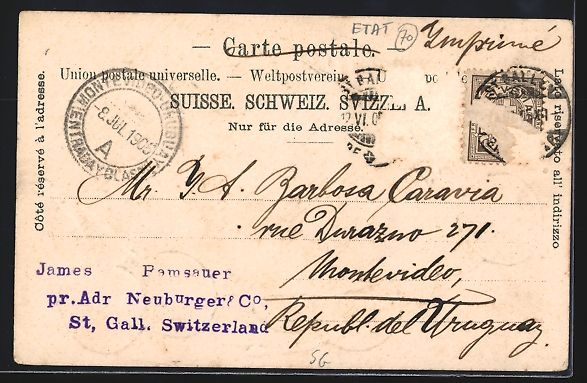 ETAT 70
Imprimé
— Carte postale. —
Union postale universelle. — Weltpostverein
SUISSE. SCHWEIZ. SVIZZE A.
Nur für die Adresse.
Côté réservé à l'adresse.
Lato riservato all' indirizzo
8 JUL 1905
A
Mr. Y A. Barbosa Caravia
rue Durazno 271.
Montevideo,
Republ. del Uruguay
James Ramsauer
pr. Adr Neuburger & Co,
St, Gall. Switzerland
SG